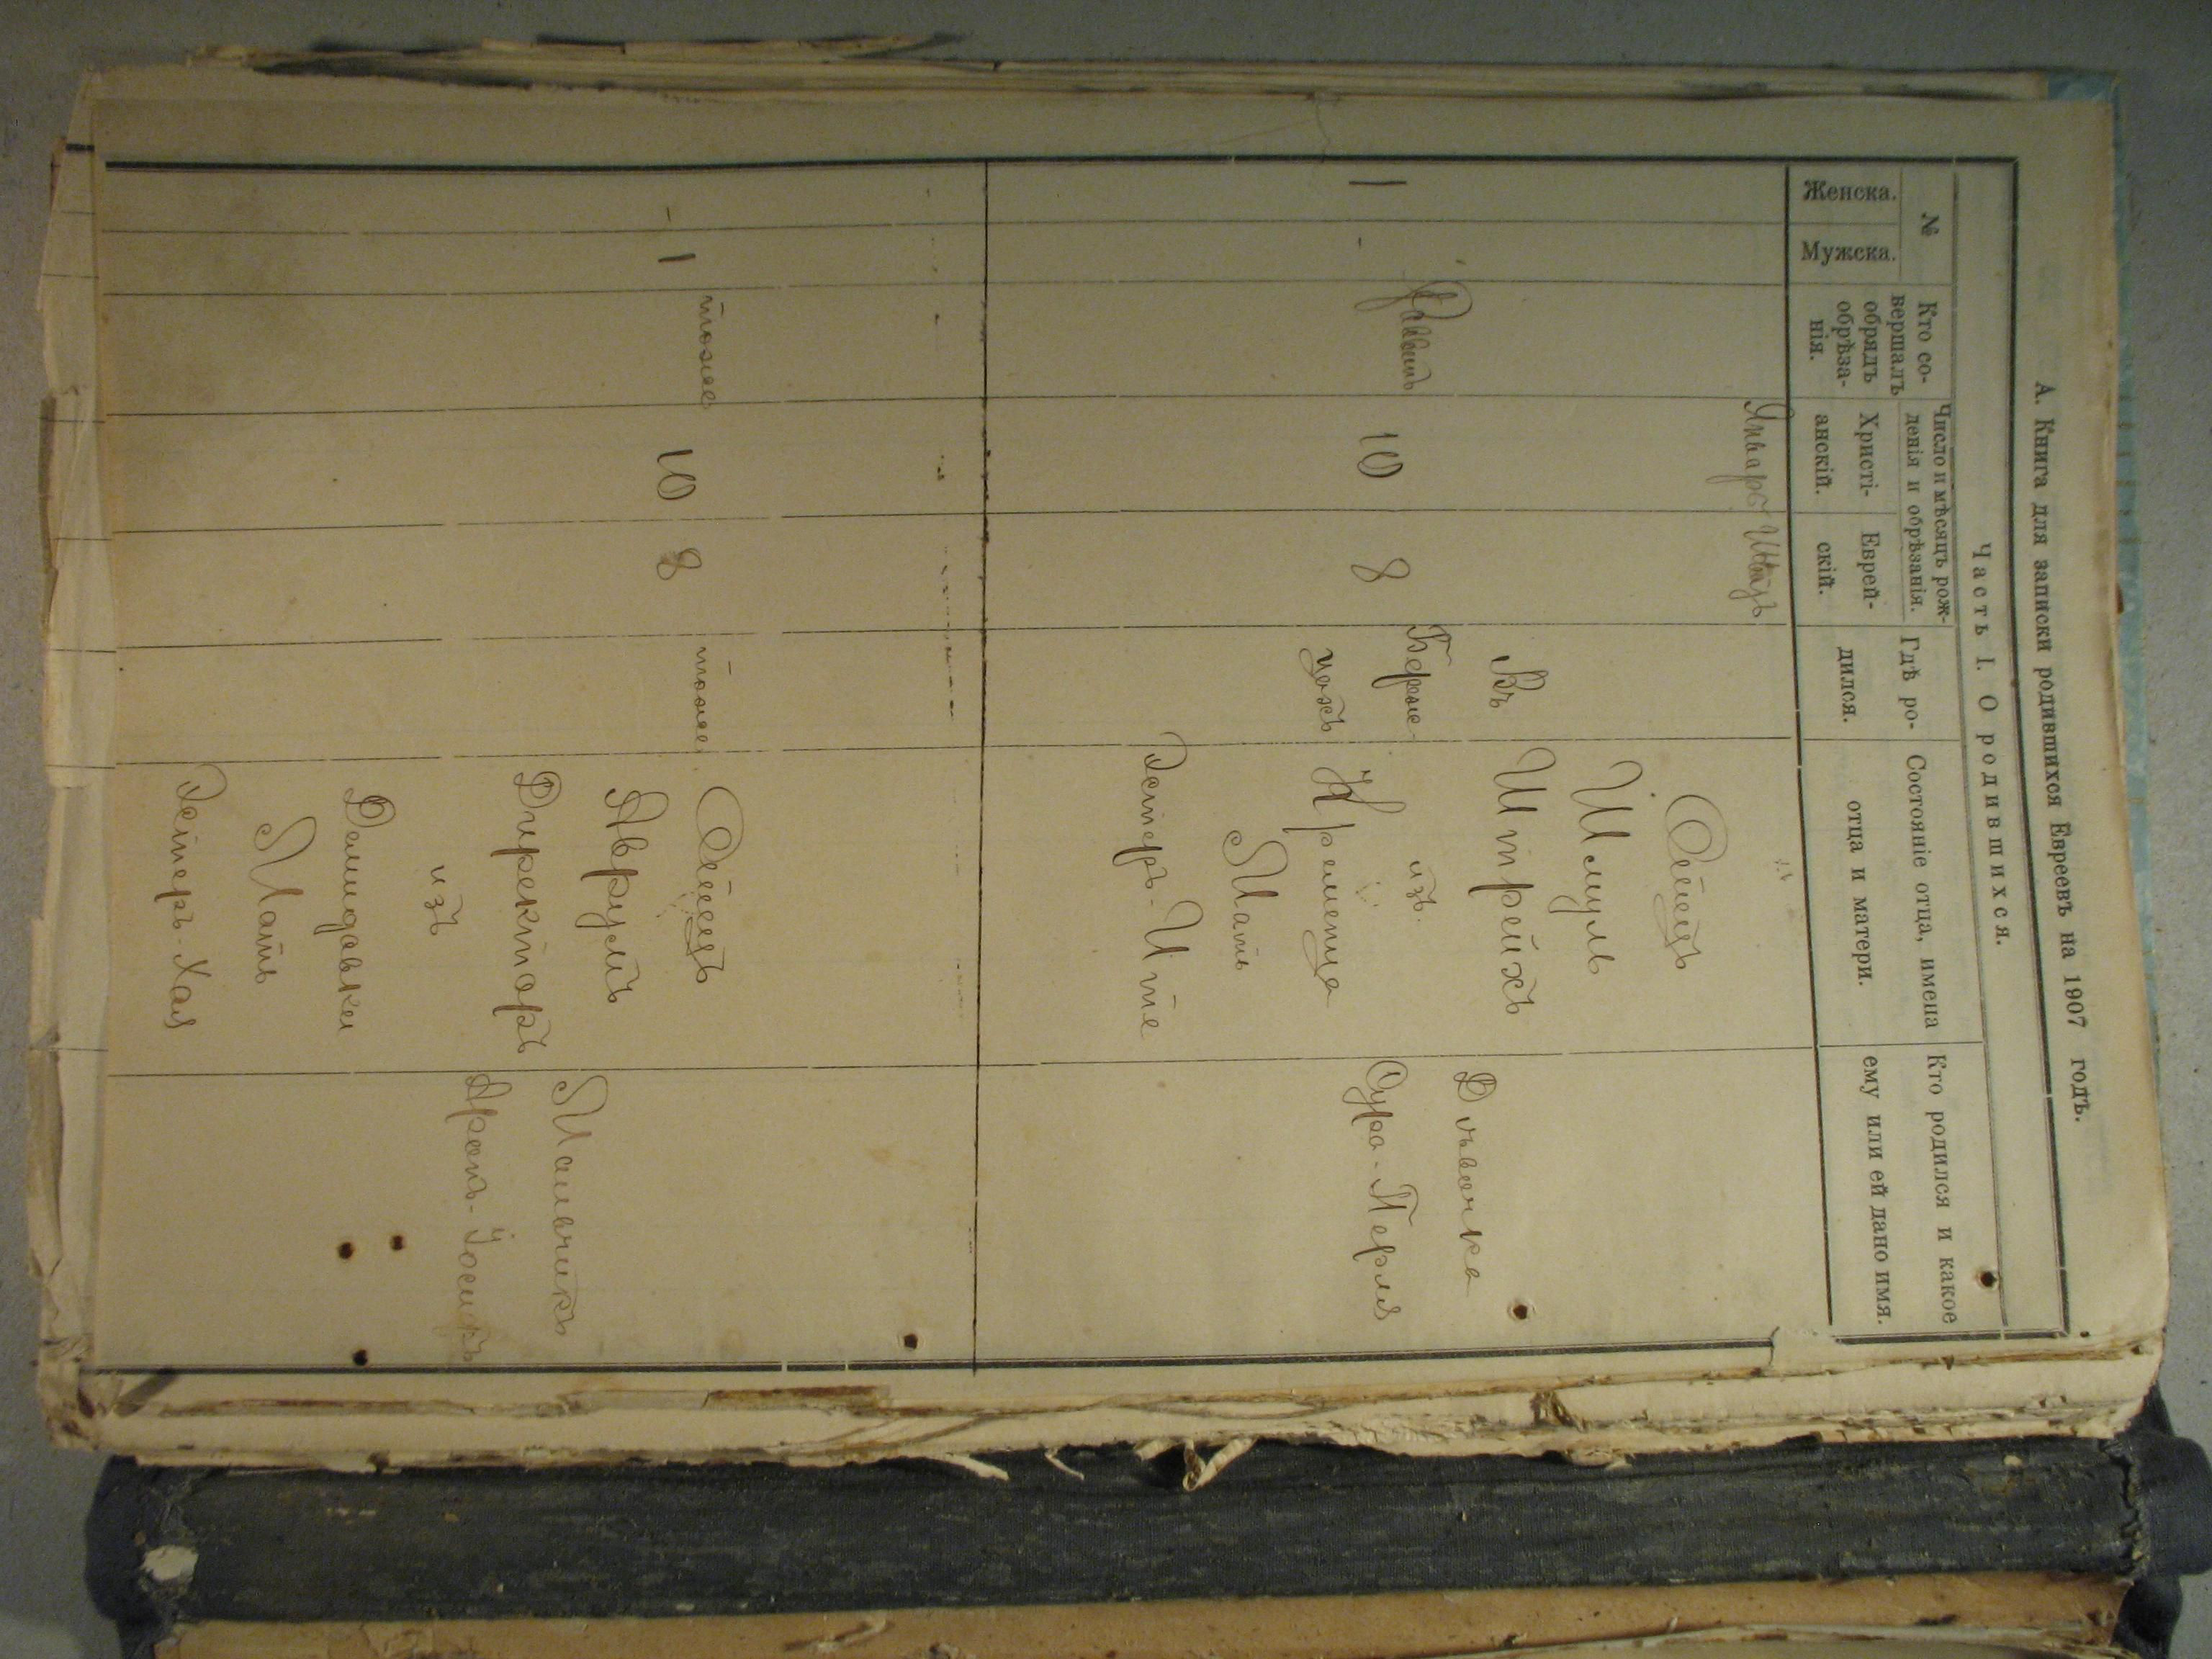 А. Книга для записки родившихся Евреевъ на 1907 годъ.
Часть I. О родившихся.
№
Женска.
Мужска.
Кто со-
вершалъ
обрядъ
обрѣза-
нія.
Число и мѣсяцъ рож-
денія и обрѣзанія.
Христі-
анскій.
Еврей-
скій.
Гдѣ ро-
дился.
Состояніе отца, имена
отца и матери.
Кто родился и какое
ему или ей дано имя.
Январь Шватъ
1
-
Раввинъ
10
8
Въ
Береже-
цахъ
Отецъ
Шмуль
Штрейхъ
изъ
Кременца
Мать
Эстеръ-Ите
Дѣвочка
Сура-Перля
-
1
тоже
10
8
тоже
Отецъ
Аврумъ
Директоръ
изъ
Демидовки
Мать
Эстеръ-Хая
Мальчикъ
Аронъ-Іосифъ